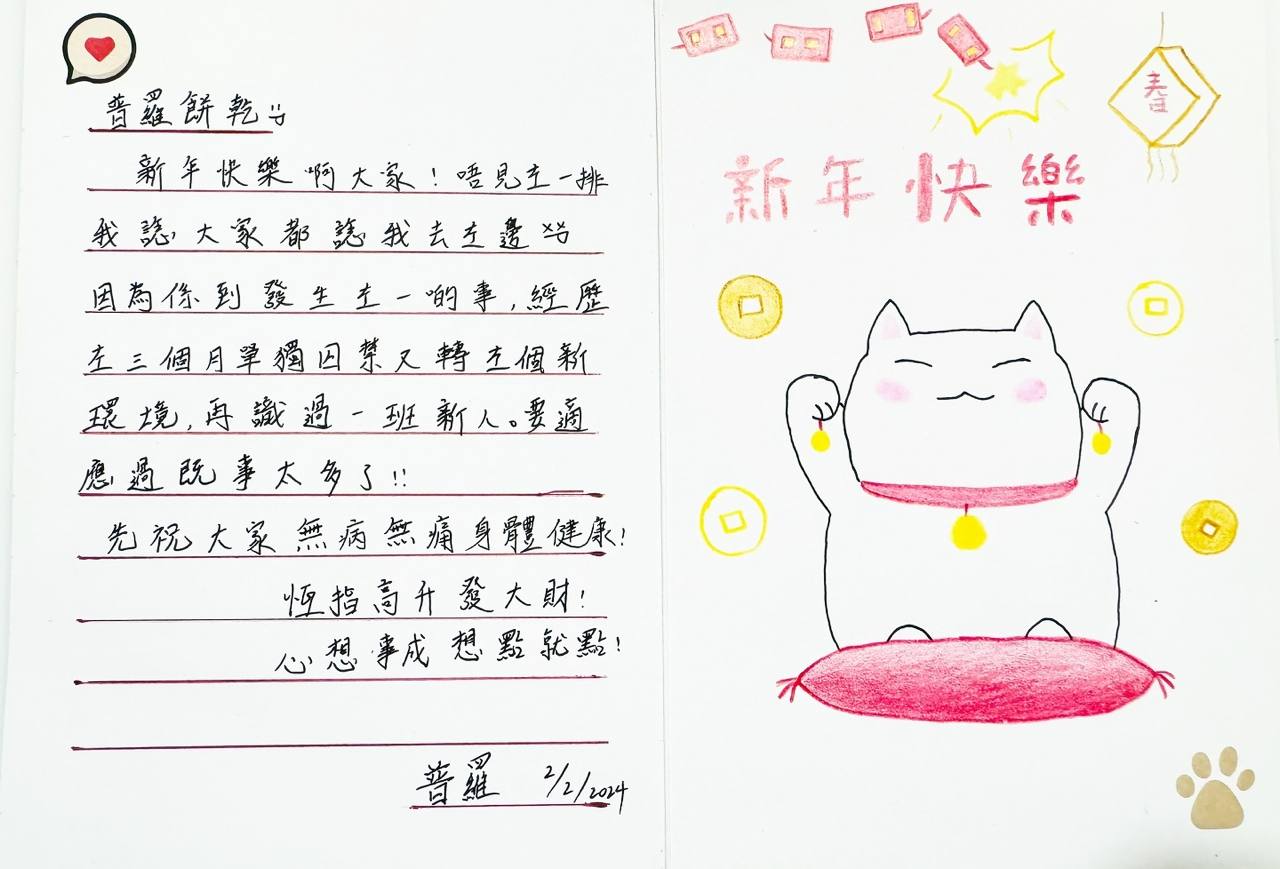 普羅餅乾
新年快樂啊大家！唔見左一排
我諗大家都諗我去左邊
因為係到發生左一啲事,經歷
左三個月單獨囚禁又轉左個新
環境,再識過一班新人。要適
應過既事太多了!!
先祝大家無病無痛身體健康!
恆指高升發大財!
心想事成想點就點!
普羅 2/2/2024
春
新年快樂